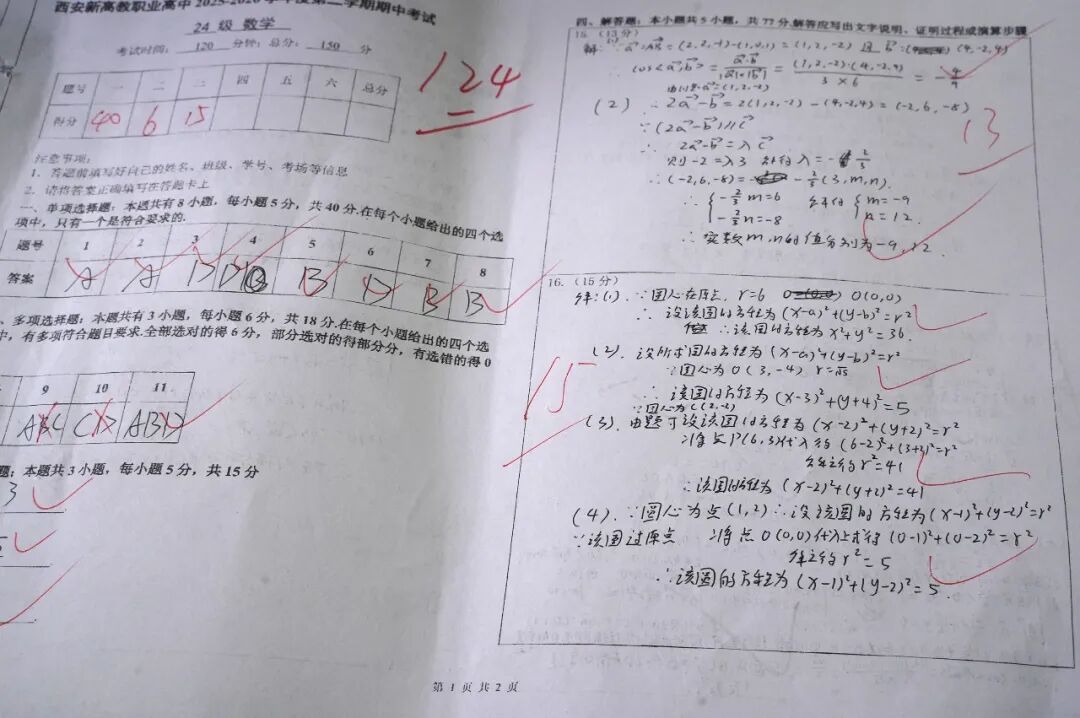 西安新高教职业高中 2025-2026 学年度第二学期期中考试
24 级 数学
考试时间: 120 分钟; 总分: 150 分
124
题号 一 二 三 四 五 六 总分
得分 40 6 15
注意事项:
1. 答题前填写好自己的姓名、班级、学号、考场等信息
2. 请将答案正确填写在答题卡上
一、单项选择题: 本题共有 8 小题, 每小题 5 分, 共 40 分.在每个小题给出的四个选
项中, 只有一个是符合要求的.
题号 1 2 3 4 5 6 7 8
答案 A A D D B D B B
、多项选择题: 本题共有 3 小题, 每小题 6 分, 共 18 分.在每个小题给出的四个选
中, 有多项符合题目要求.全部选对的得 6 分, 部分选对的得部分分, 有选错的得 0
9 10 11
ABC CD ABD
题: 本题共 3 小题, 每小题 5 分, 共 15 分
3
四、解答题: 本小题共 5 小题, 共 77 分.解答应写出文字说明、证明过程或演算步骤
15. (13 分)
解: (1) ∵a=AB=(2,2,-1)-(1,0,1)=(1,2,-2) 且 b=(4,-2,4)
∴cos<a,b>=a·b/|a||b|=(1,2,-2)·(4,-2,4)/3×6=-4/9
由(1)得a=(1,2,-2)
(2) ∴2a-b=2(1,2,-2)-(4,-2,4)=(-2,6,-8)
∵(2a-b)∥c
∴2a-b=λc
则-2=λ3 解得λ=-2/3
∴(-2,6,-8)=-2/3(3,m,n)
∴{-2/3m=6 解得{m=-9
-2/3n=-8 n=12.
∴实数m,n的值分别为-9,12
13
16. (15 分)
解: (1). ∵圆心在原点, r=6 O(0,0)
∴设该圆的方程为(x-a)²+(y-b)²=r²
∴该圆的方程为x²+y²=36.
(2). 设所求圆的方程为(x-a)²+(y-b)²=r²
∵圆心为O(3,-4) r=√5
∴该圆的方程为(x-3)²+(y+4)²=5
15
∵圆心为C(2,-2)
(3). 由题可设该圆的方程为(x-2)²+(y+2)²=r²
∴将点P(6,3)代入得(6-2)²+(3+2)²=r²
解之得r²=41
∴该圆的方程为(x-2)²+(y+2)²=41
(4). ∵圆心为点(1,2) ∴设该圆的方程为(x-1)²+(y-2)²=r²
∵该圆过原点 ∴将点O(0,0)代入上式得(0-1)²+(0-2)²=r²
解之得r²=5
∴该圆的方程为(x-1)²+(y-2)²=5.
第 1 页 共 2 页